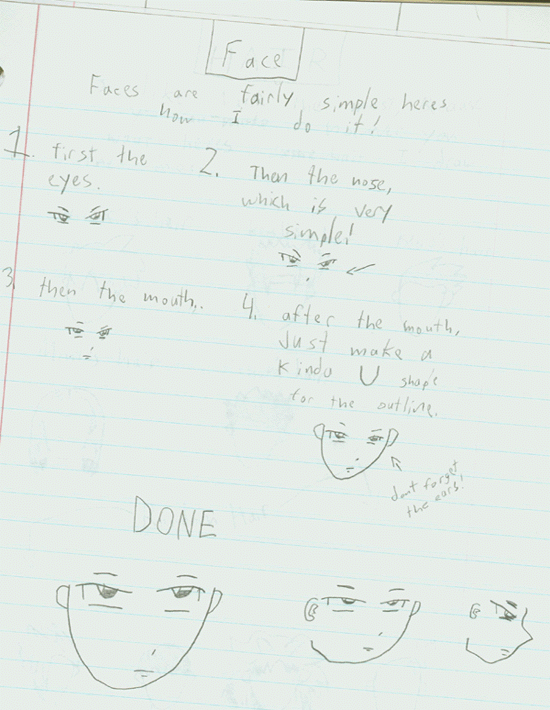 Face
Faces are fairly simple heres
how I do it!
1. first the
eyes.
2. Then the nose,
which is very
simple!
3. then the mouth..
4. after the mouth,
Just make a
kinda U shape
for the outline.
dont forget
the ears!
DONE